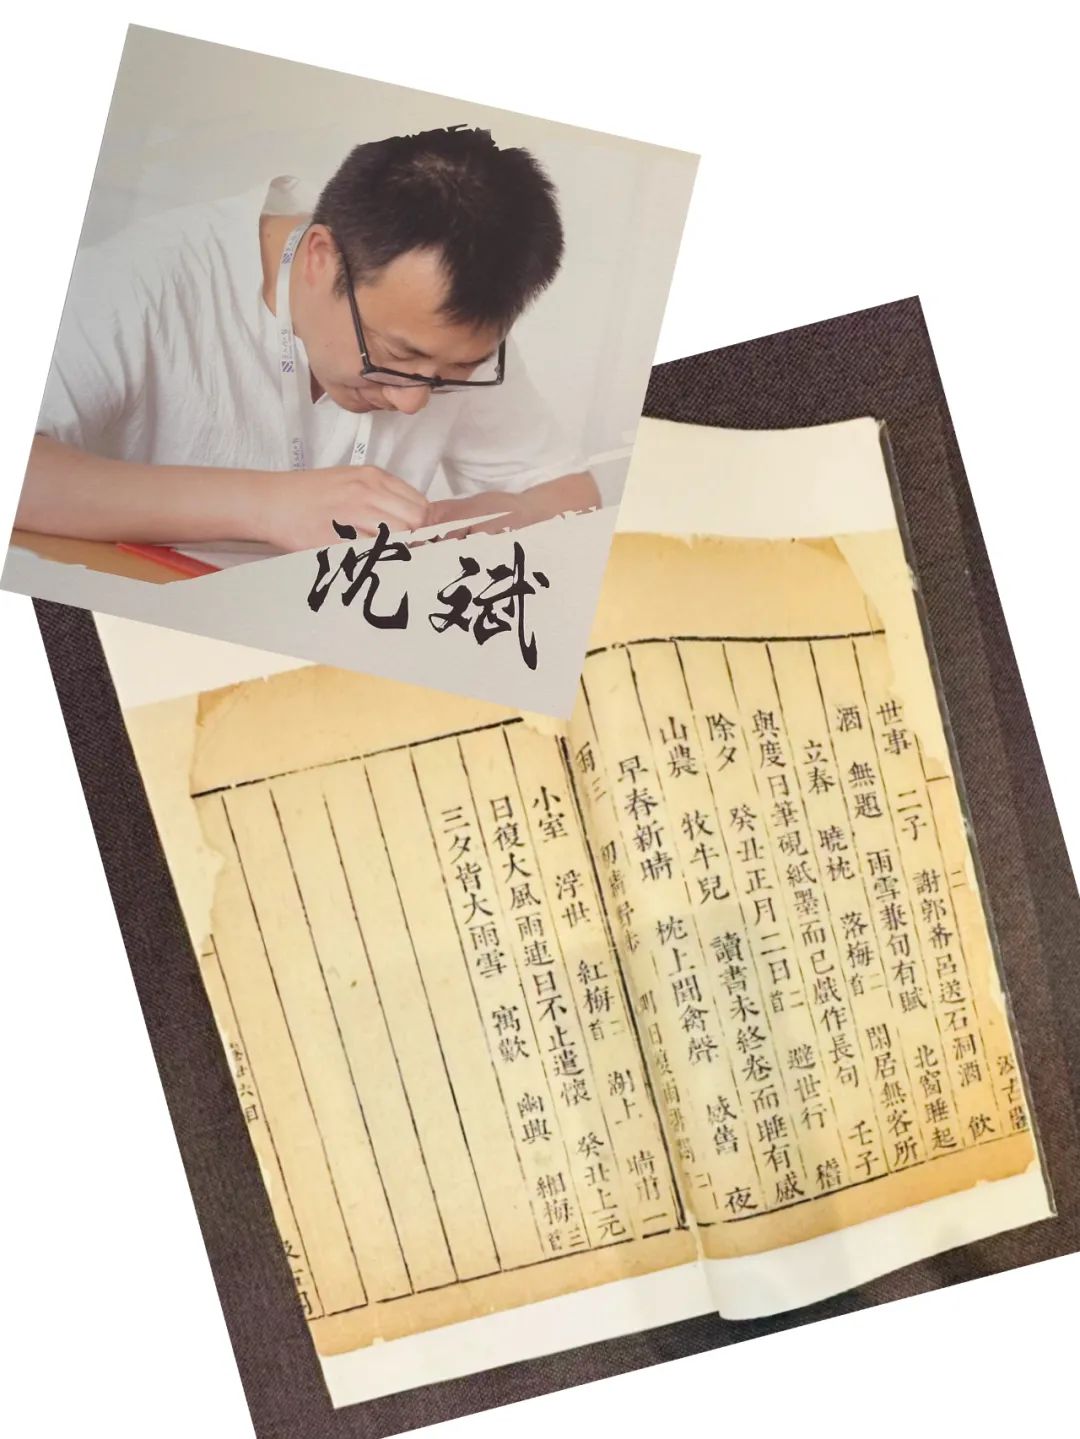 沈斌
汲古閣
世事 二子 謝郭希呂送石洞酒 飲
酒 無題 雨雪兼旬有賦 北窗睡起
立春 曉枕 落梅二首 閑居無客所
與度日筆硯紙墨而已戲作長句 壬子
除夕 癸丑正月二日二首 避世行 稽
山農 牧牛兒 讀書未終卷而睡有感
早春新晴 枕上聞禽聲 感舊 夜
雨三 初晴野步 明日復雨
小室 浮世 紅梅二首 湖上 晴甫一
日復大風雨連日不止遣懷 癸丑上元
三夕皆大雨雪 寓歎 幽興 梅三首
六目